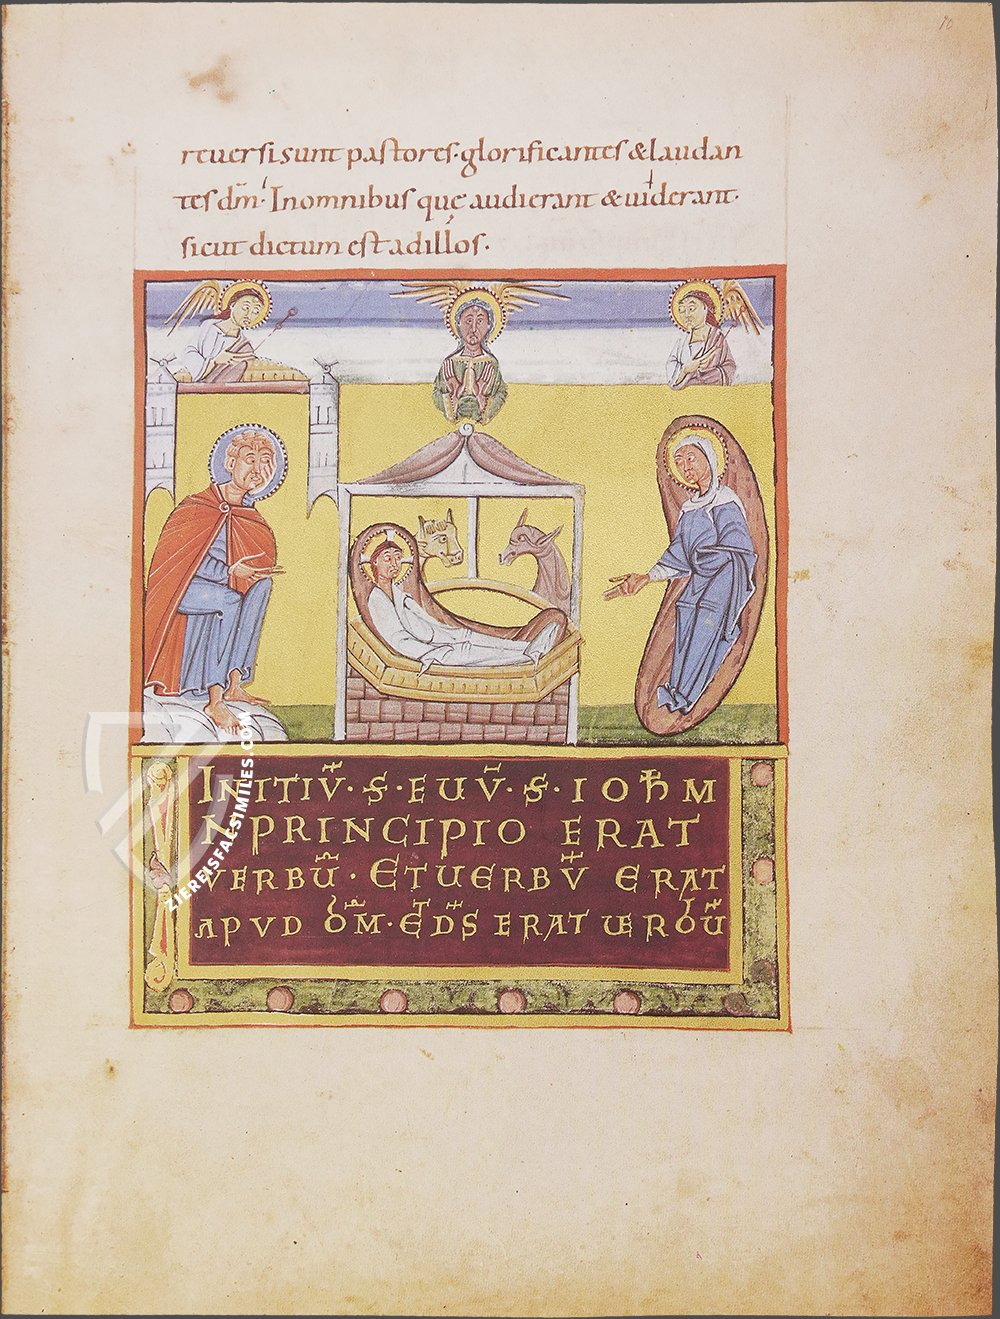 10
reuersi sunt pastores·glorificantes & laudan
tes dm̄· Inomnibus quę audierant & uiderant·
sicut dictum est adillos·
INITIV̄·S·EUV̄·S·IOHM
IN PRINCIPIO ERAT
VERBŪ·ETUERBV̄ ERAT
APVD DM̄·ET D̄S ERAT UERBŪ
ZIEREISFACSIMILES.COM